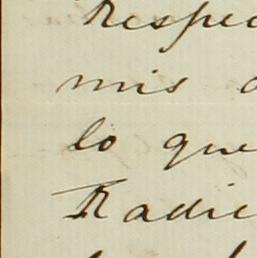 Respec
mis
lo que
Radic